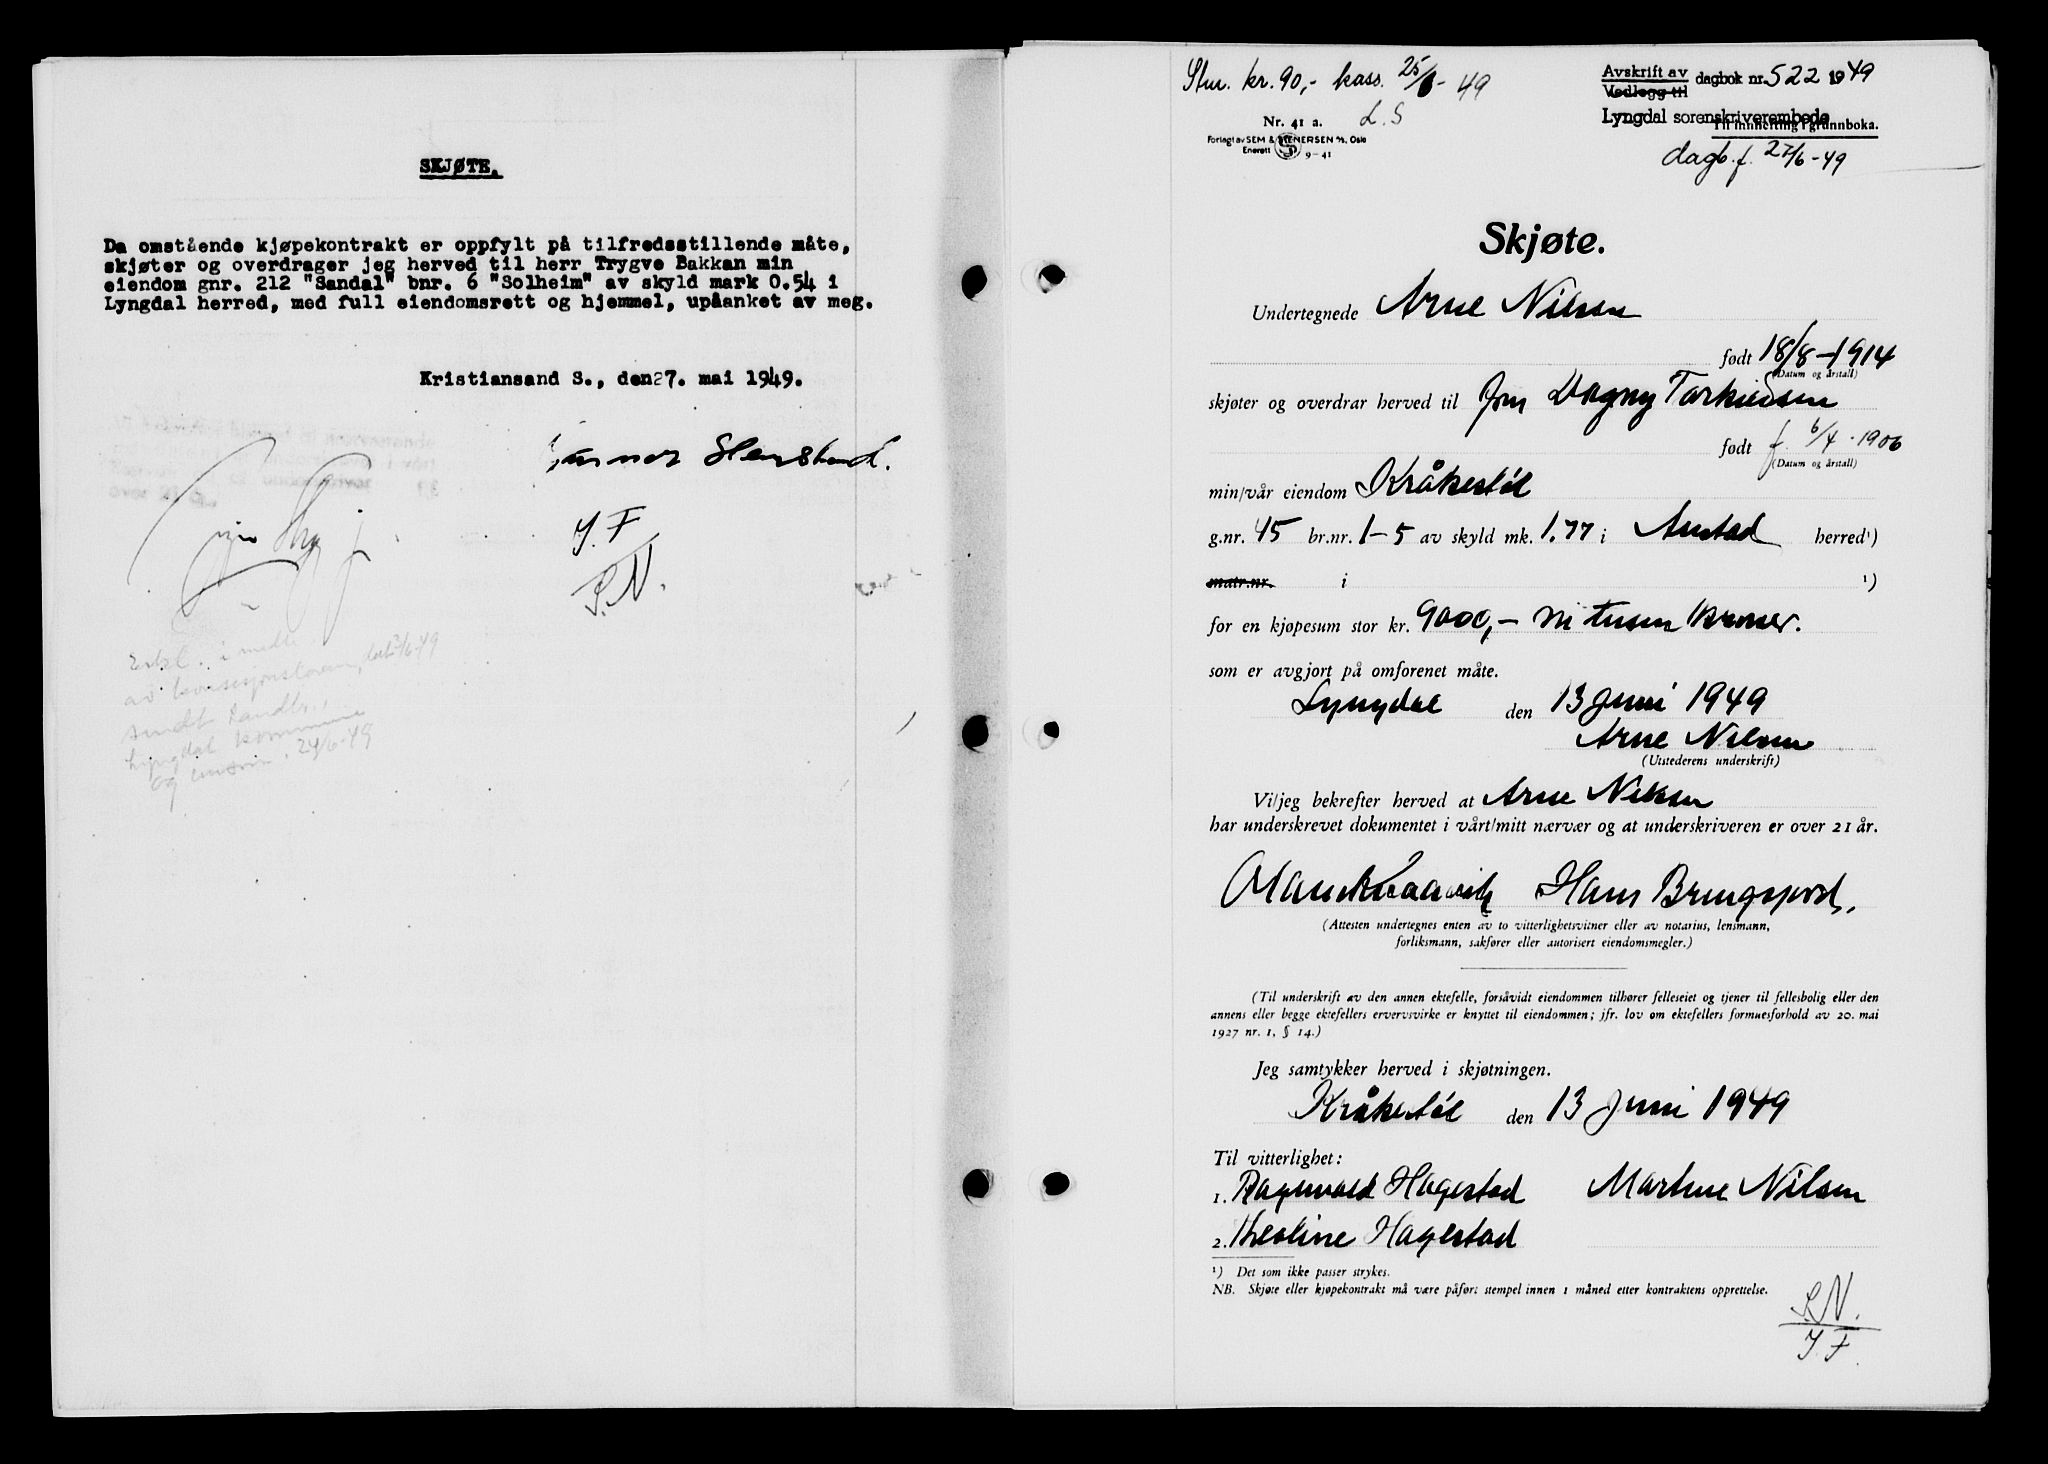 SKJØTE.
Da omstående kjøpekontrakt er oppfylt på tilfredsstillende måte,
skjøter og overdrager jeg herved til herr Trygve Bakkan min
eiendom gnr. 212 "Sandal" bnr. 6 "Solheim" av skyld mark 0.54 i
Lyngdal herred, med full eiendomsrett og hjemmel, upåanket av meg.
Kristiansand S., den 27. mai 1949.
Gunnar
Y. F
S.N.
Erkl. i medh.
av konsesjonsloven, dat. /6-49
sendt landbr.
Lyngdal kommune
og 24/6-49
Stm. kr. 90,- kass. 25/6-49
L.S
Nr. 41 a.
Forlagt av SEM & STENERSEN A/S, Oslo
Enerett 9-41
Avskrift av
Vedlegg til
dagbok nr. 522 1949
Lyngdal sorenskriverembede
Til innhefting i grunnboka.
dagb. f. 27/6-49
Skjøte.
Undertegnede Arne Nilsen
født 18/8-1914
(Datum og årstall)
skjøter og overdrar herved til fru Dagny Torkildsen
født f. 6/4-1906
(Datum og årstall)
min/vår eiendom Kråkestøl
g.nr. 45 br.nr. 1-5 av skyld mk. 1.77 i Austad herred¹)
matr.nr. i ¹)
for en kjøpesum stor kr. 9000,- ni tusen kroner.
som er avgjort på omforenet måte.
Lyngdal den 13 juni 1949
Arne Nilsen
(Utstederens underskrift)
Vi/jeg bekrefter herved at Arne Nilsen
har underskrevet dokumentet i vårt/mitt nærvær og at underskriveren er over 21 år.
Hans Bringsjord.
(Attesten undertegnes enten av to vitterlighetsvitner eller av notarius, lensmann,
forliksmann, sakfører eller autorisert eiendomsmegler.)
(Til underskrift av den annen ektefelle, forsåvidt eiendommen tilhører felleseiet og tjener til fellesbolig eller den
annens eller begge ektefellers ervervsvirke er knyttet til eiendommen; jfr. lov om ektefellers formuesforhold av 20. mai
1927 nr. 1, § 14.)
Jeg samtykker herved i skjøtningen.
Kråkestøl den 13 juni 1949
Til vitterlighet:
1. Ragnvald Hagestad Martine Nilsen
2. Theoline Hagestad
¹) Det som ikke passer strykes.
NB. Skjøte eller kjøpekontrakt må være påført stempel innen 1 måned etter kontraktens opprettelse.
S.N.
Y.F.